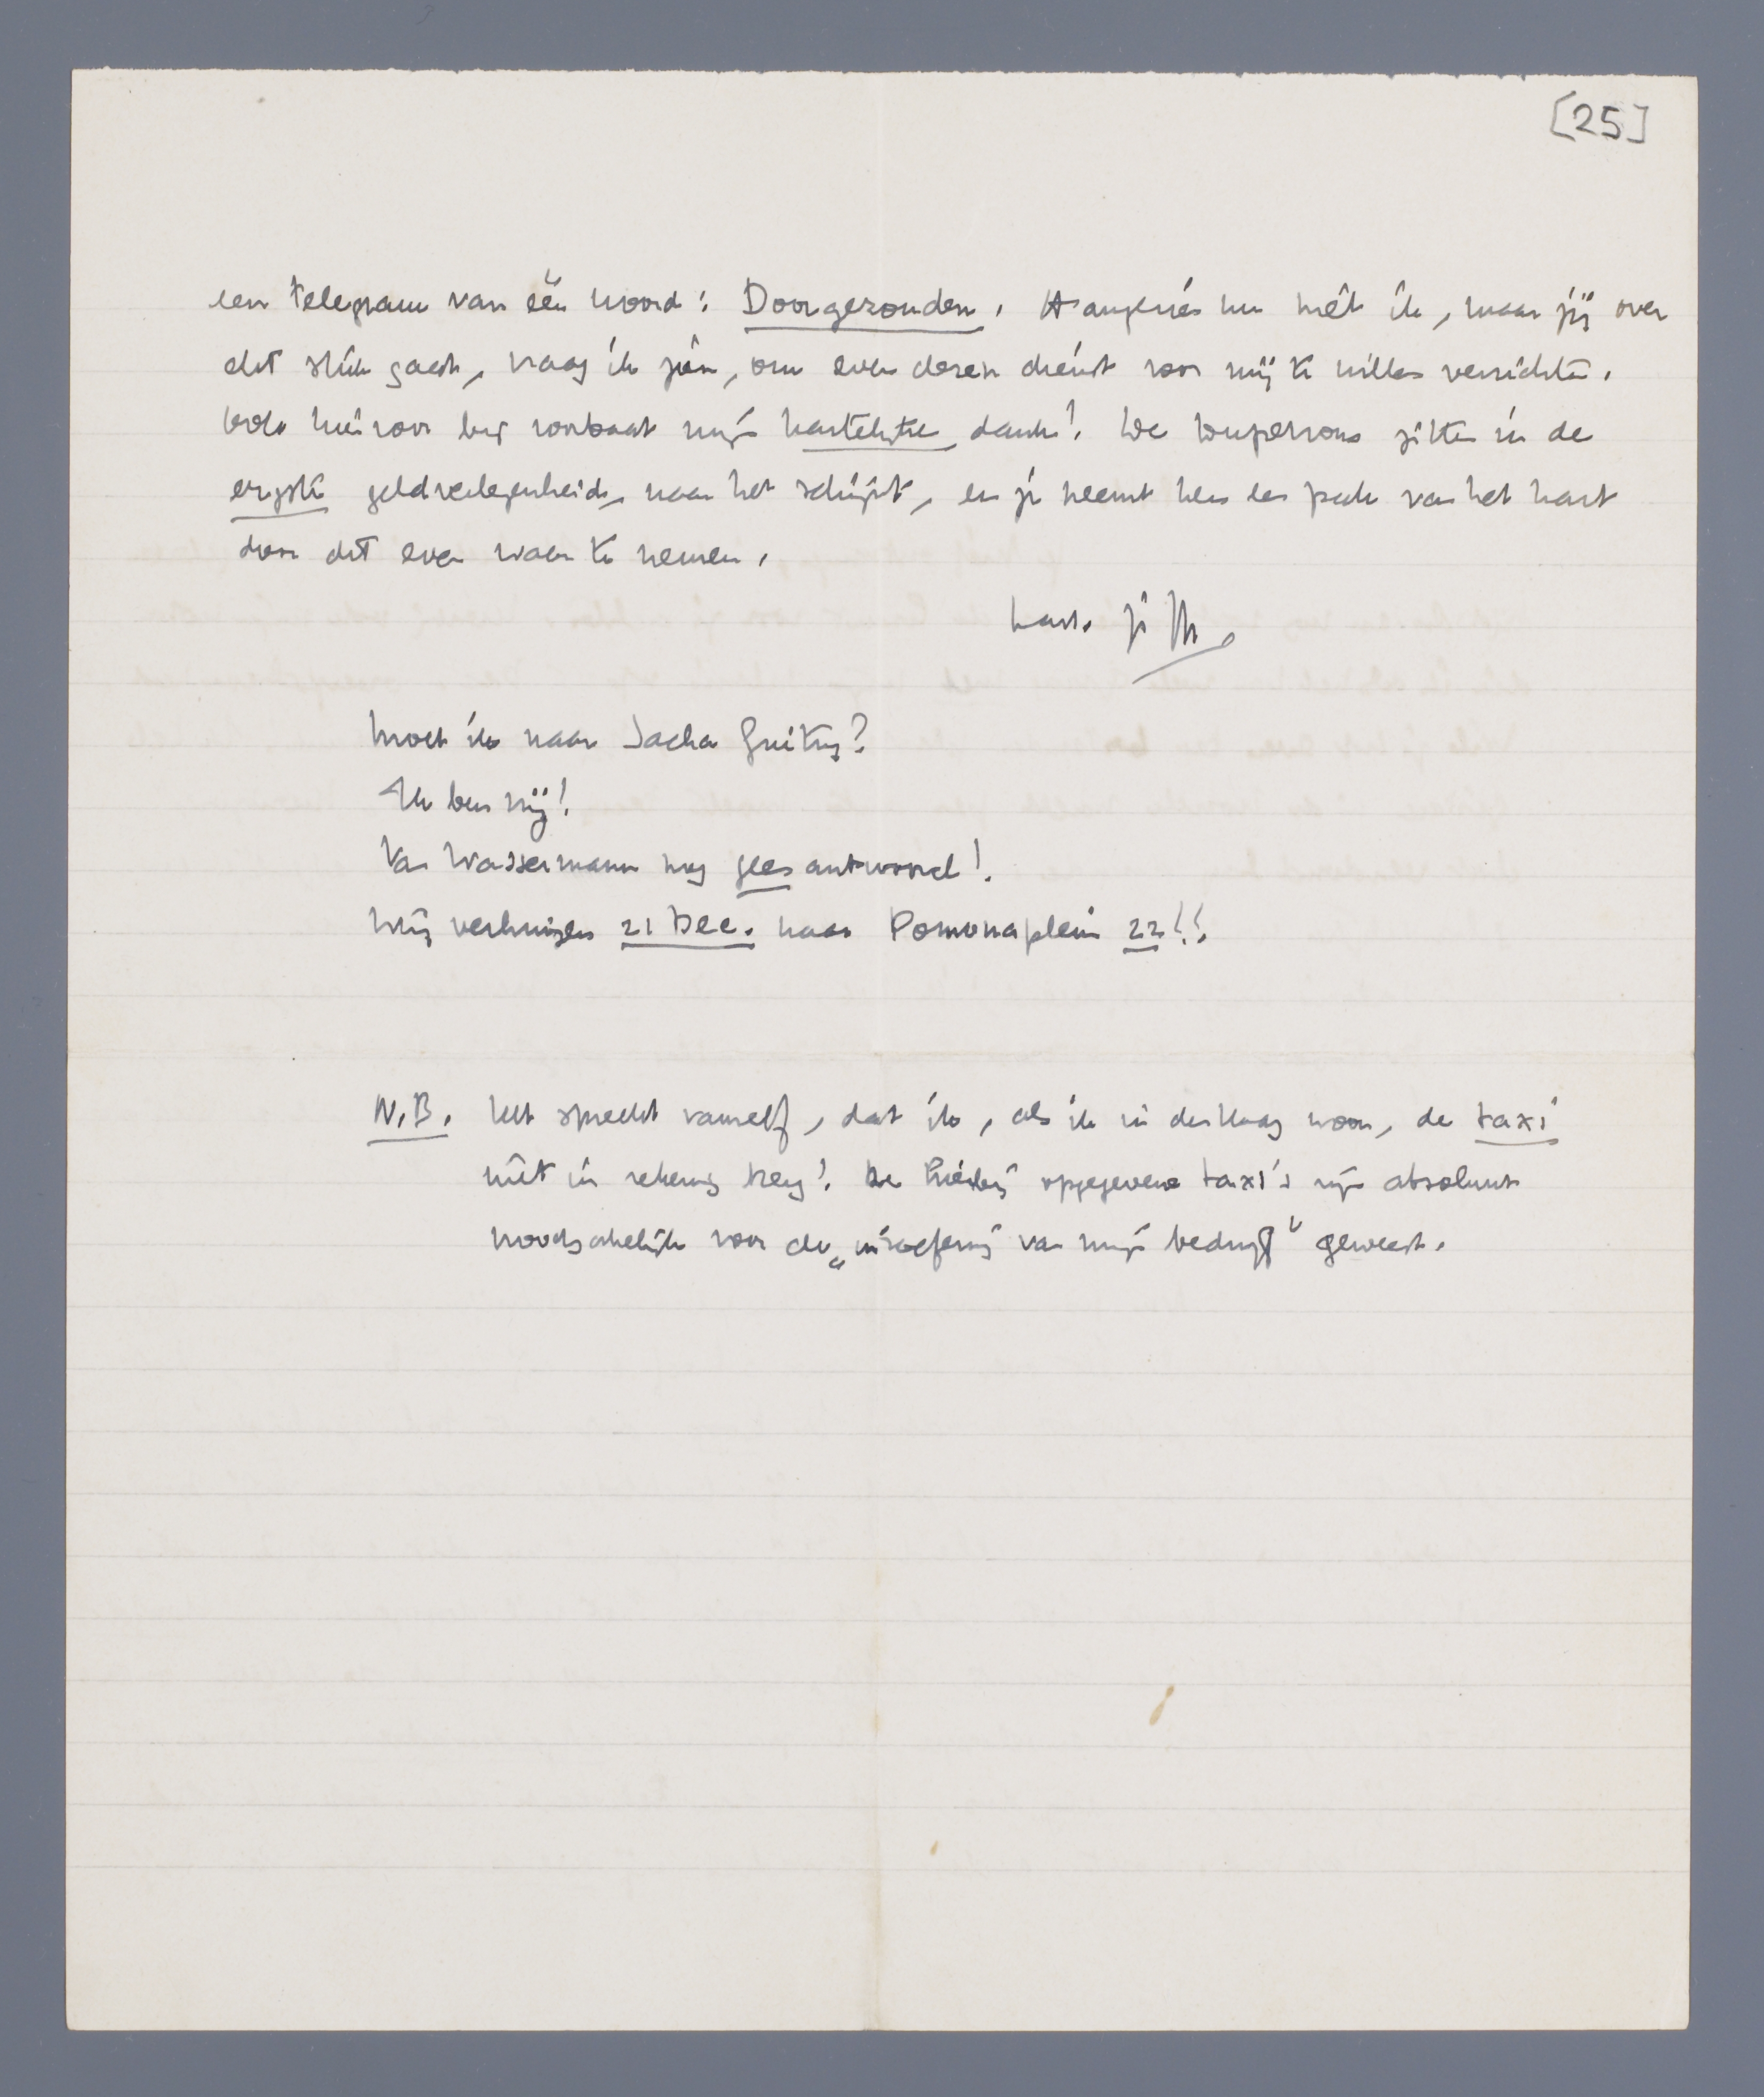 [25]
een telegram van één woord: Doorgezonden. Aangezien nu niet ik, maar jij over
dit stuk gaat, vraag ik jou, om even dezen dienst voor mij te willen verrichten.
hiervoor bij voorbaat mijn hartelijke dank! De zitten in de
ergste geldverlegenheid, naar het schijnt, en je neemt hen een pak van het hart
door dit even waar te nemen.
hart. je M.
Moet ik naar Sacha Guitry?
Ik ben vrij!
Van Wassermann nog geen antwoord!
Wij verhuizen 21 Dec. naar Pomonaplein 22!!
N.B. Het spreekt vanzelf, dat ik, als ik in den Haag woon, de taxi
niet in rekening breng! De hierbij opgegeven taxi's zijn absoluut
noodzakelijk voor de „uitoefening van mijn bedrijf" geweest.